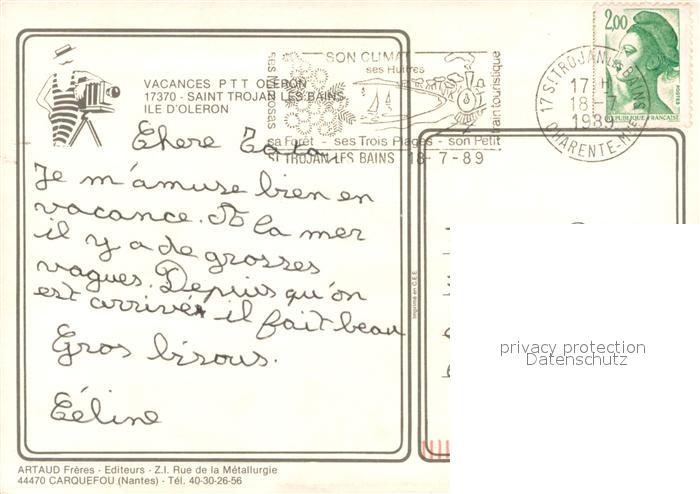 SON CLIMAT
ses Huîtres
ses Mimosas
train touristique
sa Forêt - ses Trois Plages - son Petit
ST TROJAN LES BAINS 18-7-89
17 ST. TROJAN LES BAINS
17 H
18-7
1989
CHARENTE-MME
2,00
POSTES
REPUBLIQUE FRANÇAISE
VACANCES PTT OLERON
17370 - SAINT TROJAN LES BAINS
ILE D'OLERON
Chere Tata
Je m'amuse bien en
vacance. A la mer
il y a de grosses
vagues. Depuis qu'on
est arrivés il fait beau
Gros bisous.
Céline
Imprimé en C.E.E.
privacy protection
Datenschutz
ARTAUD Frères - Editeurs - Z.I. Rue de la Métallurgie
44470 CARQUEFOU (Nantes) - Tél. 40-30-26-56